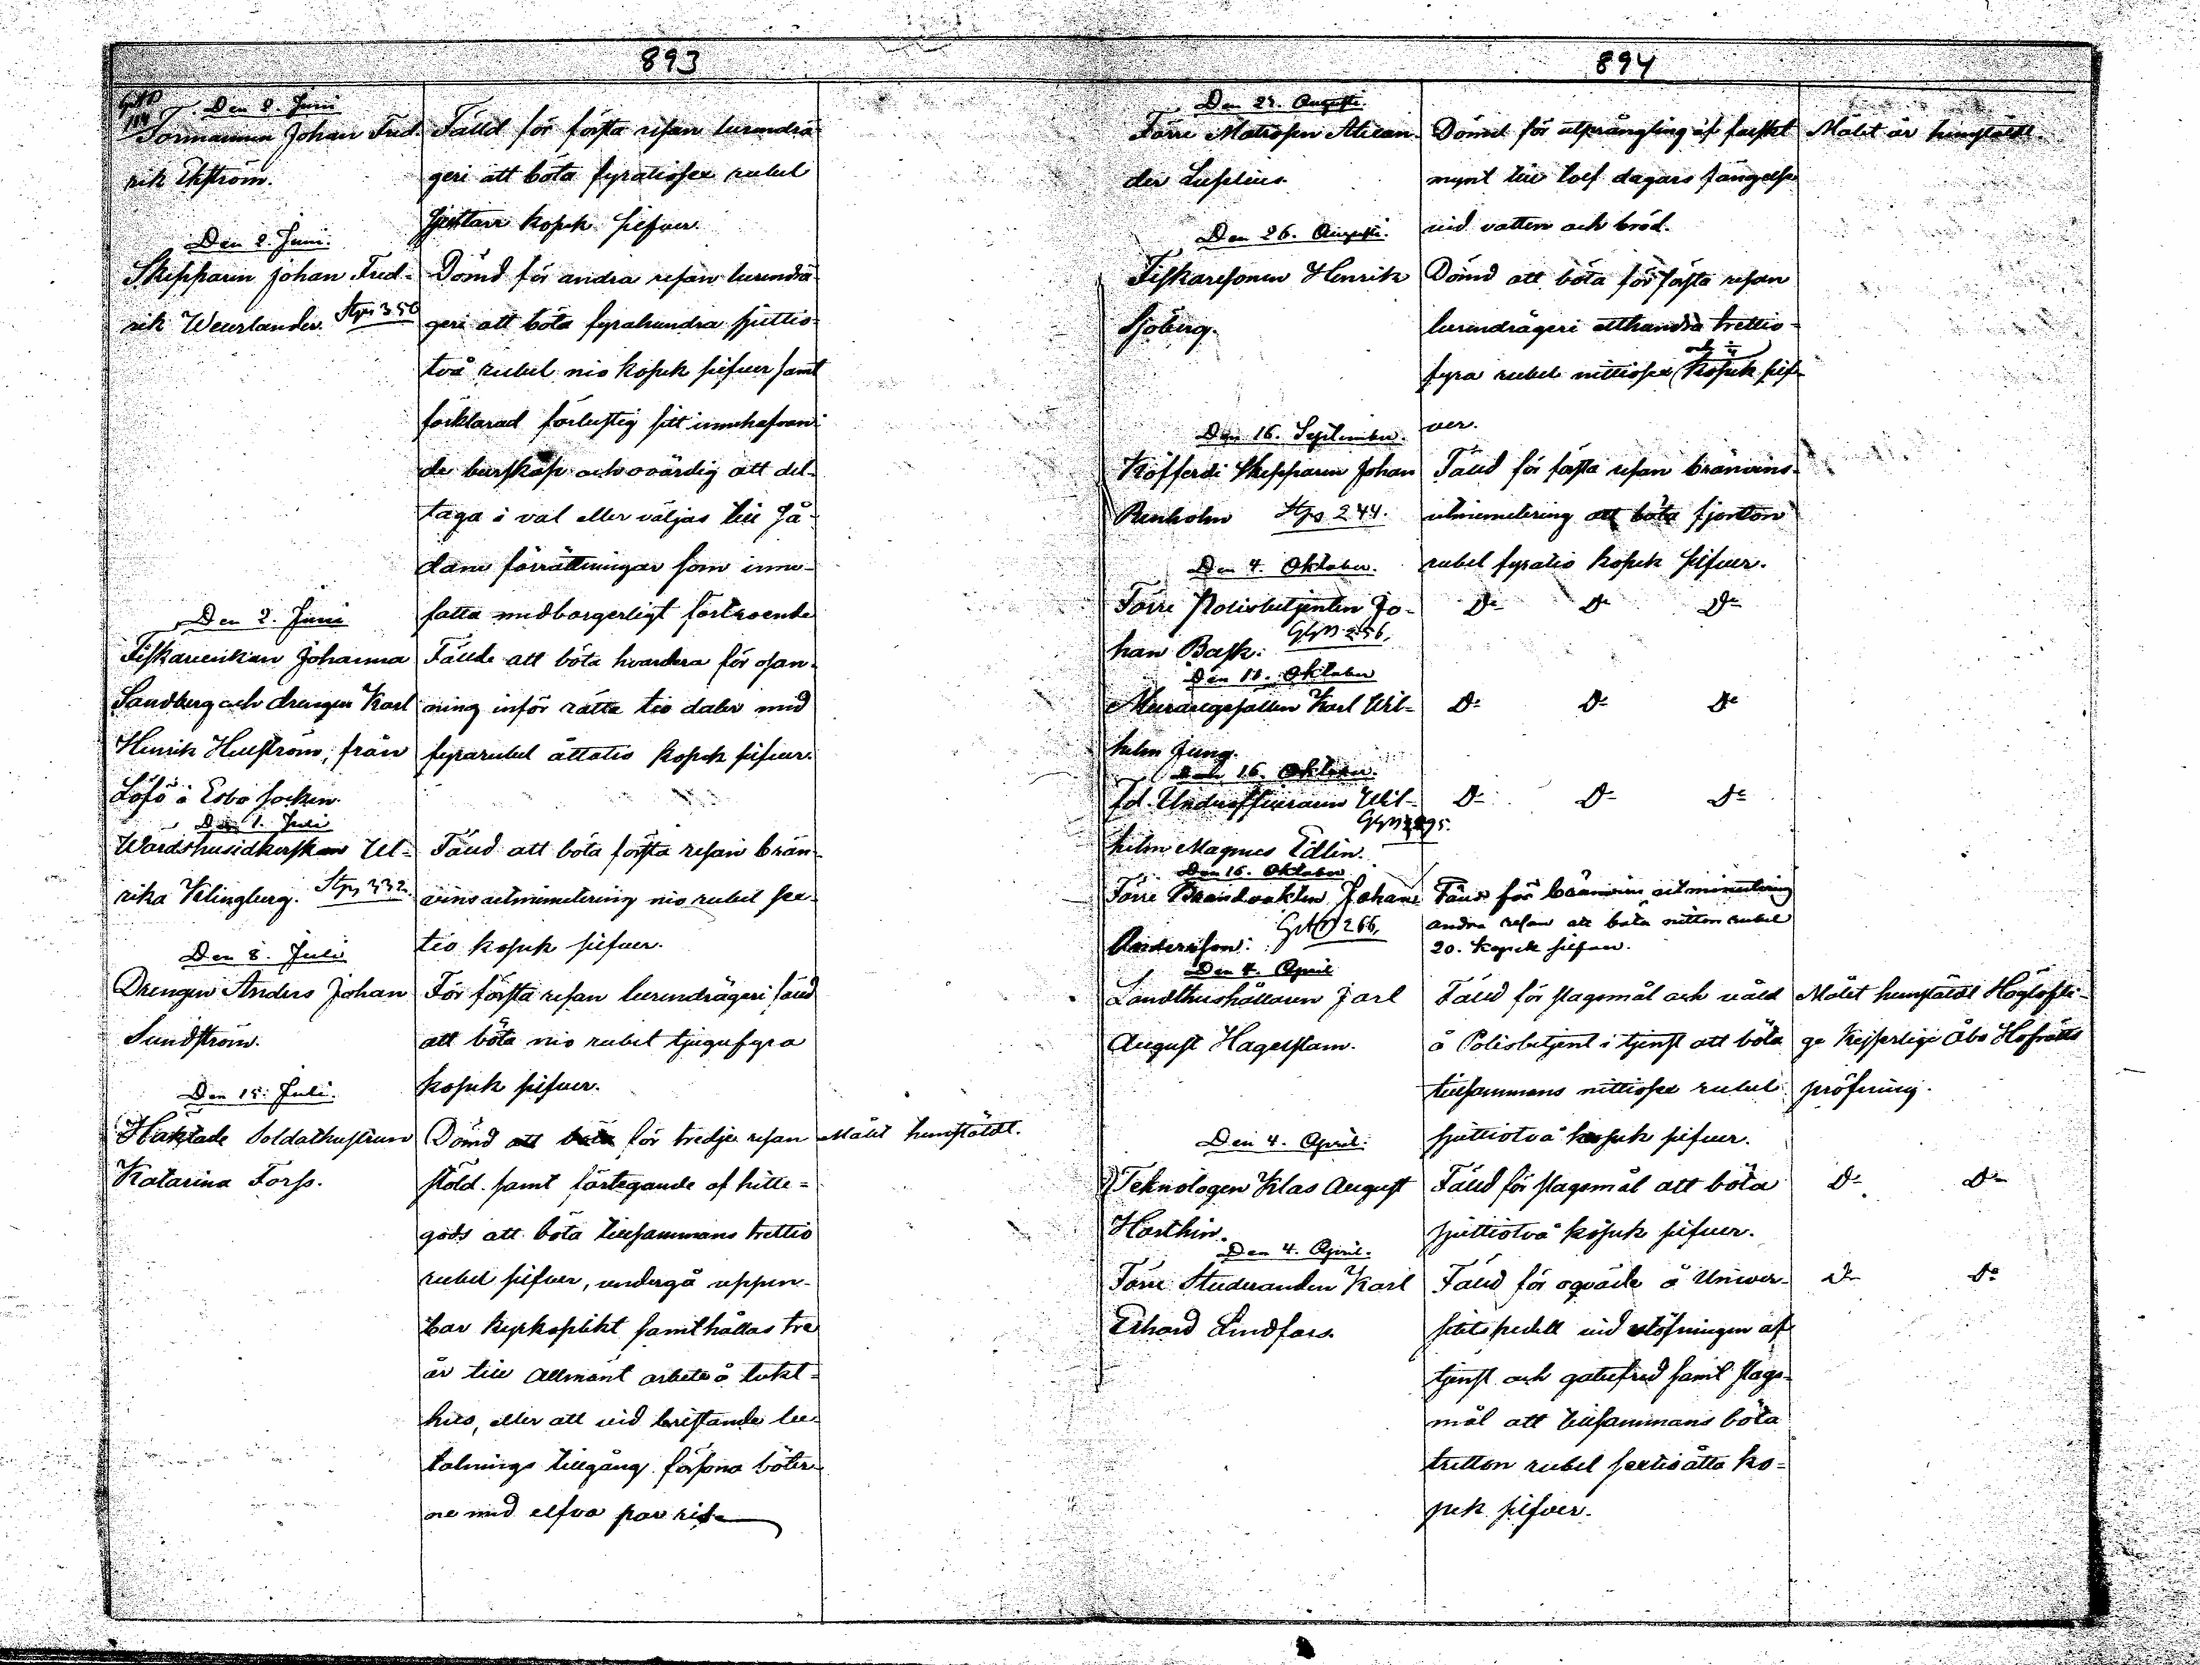 893
Den 2. Juni
Formannen Johan Fred-
rik Ekström.
Fälld för första resan lurendrä-
geri att böta fyratiosex rubel
sjutton kopek silfver.
Den 2. Juni.
Skepparen Johan Fred-
rik Weurlander. Stps 350
Dömd för andra resan lurendrä-
geri att böta fyrahundra sjuttio-
två rubel nio kopek silfver samt
förklarad förlustig sitt innehafvan-
de burskap och ovärdig att del-
taga i val eller väljas till så-
dane förrättningar som inne-
fatta medborgerligt förtroende
Den 2. Juni
Fiskareenkan Johanna
Sandberg och drengen Karl
Henrik Hellström, från
Löfö i Esbo socken.
Fällde att böta hvardera för osan-
ning inför rätta tio daler med
fyra rubel åttatio kopek silfver.
Den 1. Juli
Wärdshusidkerskan Ul-
rika Klingberg. Stps 332.
Fälld att böta första resan brän-
vins utminutering nio rubel sex-
tio kopek silfver.
Den 8. Juli
Drengen Anders Johan
Sundström.
För första resan lurendrägeri fälld
att böta nio rubel tjugufyra
kopek silfver.
Den 15. Juli.
Häktade Soldathustrun
Katarina Forss.
Dömd att böta för tredje resan
stöld samt förtegande af hitte-
gods att böta tillsammans trettio
rubel silfver, undergå uppen-
bar kyrkoplikt samt hållas tre
år till allmänt arbete å tukt-
hus, eller att vid bristande be-
talnings tillgång försona böter-
ne med elfva par ris
Målet hemstäldt.
894
Den 29. Augusti.
Förre Matrosen Alexan-
der Luselius.
Dömd för utprångling af falskt
mynt till tolf dagars fängelse
vid vatten och bröd.
Målet är hemstäldt.
Den 26. Augusti.
Fiskaresonen Henrik
Sjöberg.
Dömd att böta för första resan
lurendrägeri etthundra trettio-
fyra rubel nittiosex kopek silf-
ver.
Den 16. September.
Kofferdi Skepparen Johan
Renholm Stps 244.
Fälld för första resan bränvins-
utminutering att böta fjorton
rubel fyratio kopek silfver.
Den 4. Oktober.
Förre Polisbetjenten Jo-
han Bask.
Do Do Do
Den 11. Oktober
Muraregesällen Karl Wil-
helm Jung.
Do Do Do
Den 16. Oktober.
fd. Underofficeraren Wil-
helm Magnus Edlin.
Do Do Do
Den 16. Oktober
Förre Brandvakten Johan
Andersson.
Fälld för bränvins utminutering
andra resan att böta nitton rubel
20. kopek silfver.
Den 4. April
Landthushållaren Jarl
August Hagelstam.
Fälld för slagsmål och våld
å Polisbetjent i tjenst att böta
tillsammans nittiosex rubel
sjuttiotvå kopek silfver.
Målet hemstäldt Höglofli-
ge Kejserlige Åbo Hofrätts
pröfning.
Den 4. April.
Teknologen Klas August
Hæsthin.
Fälld för slagsmål att böta
sjuttiotvå kopek silfver.
Do Do
Den 4. April.
Förre Studeranden Karl
Erhard Lindfors.
Fälld för oqväde å Univer-
sitetspedell vid utöfningen af
tjenst och gatufrid samt slags-
mål att tillsammans böta
tretton rubel sextioåtta ko-
pek silfver.
Do Do